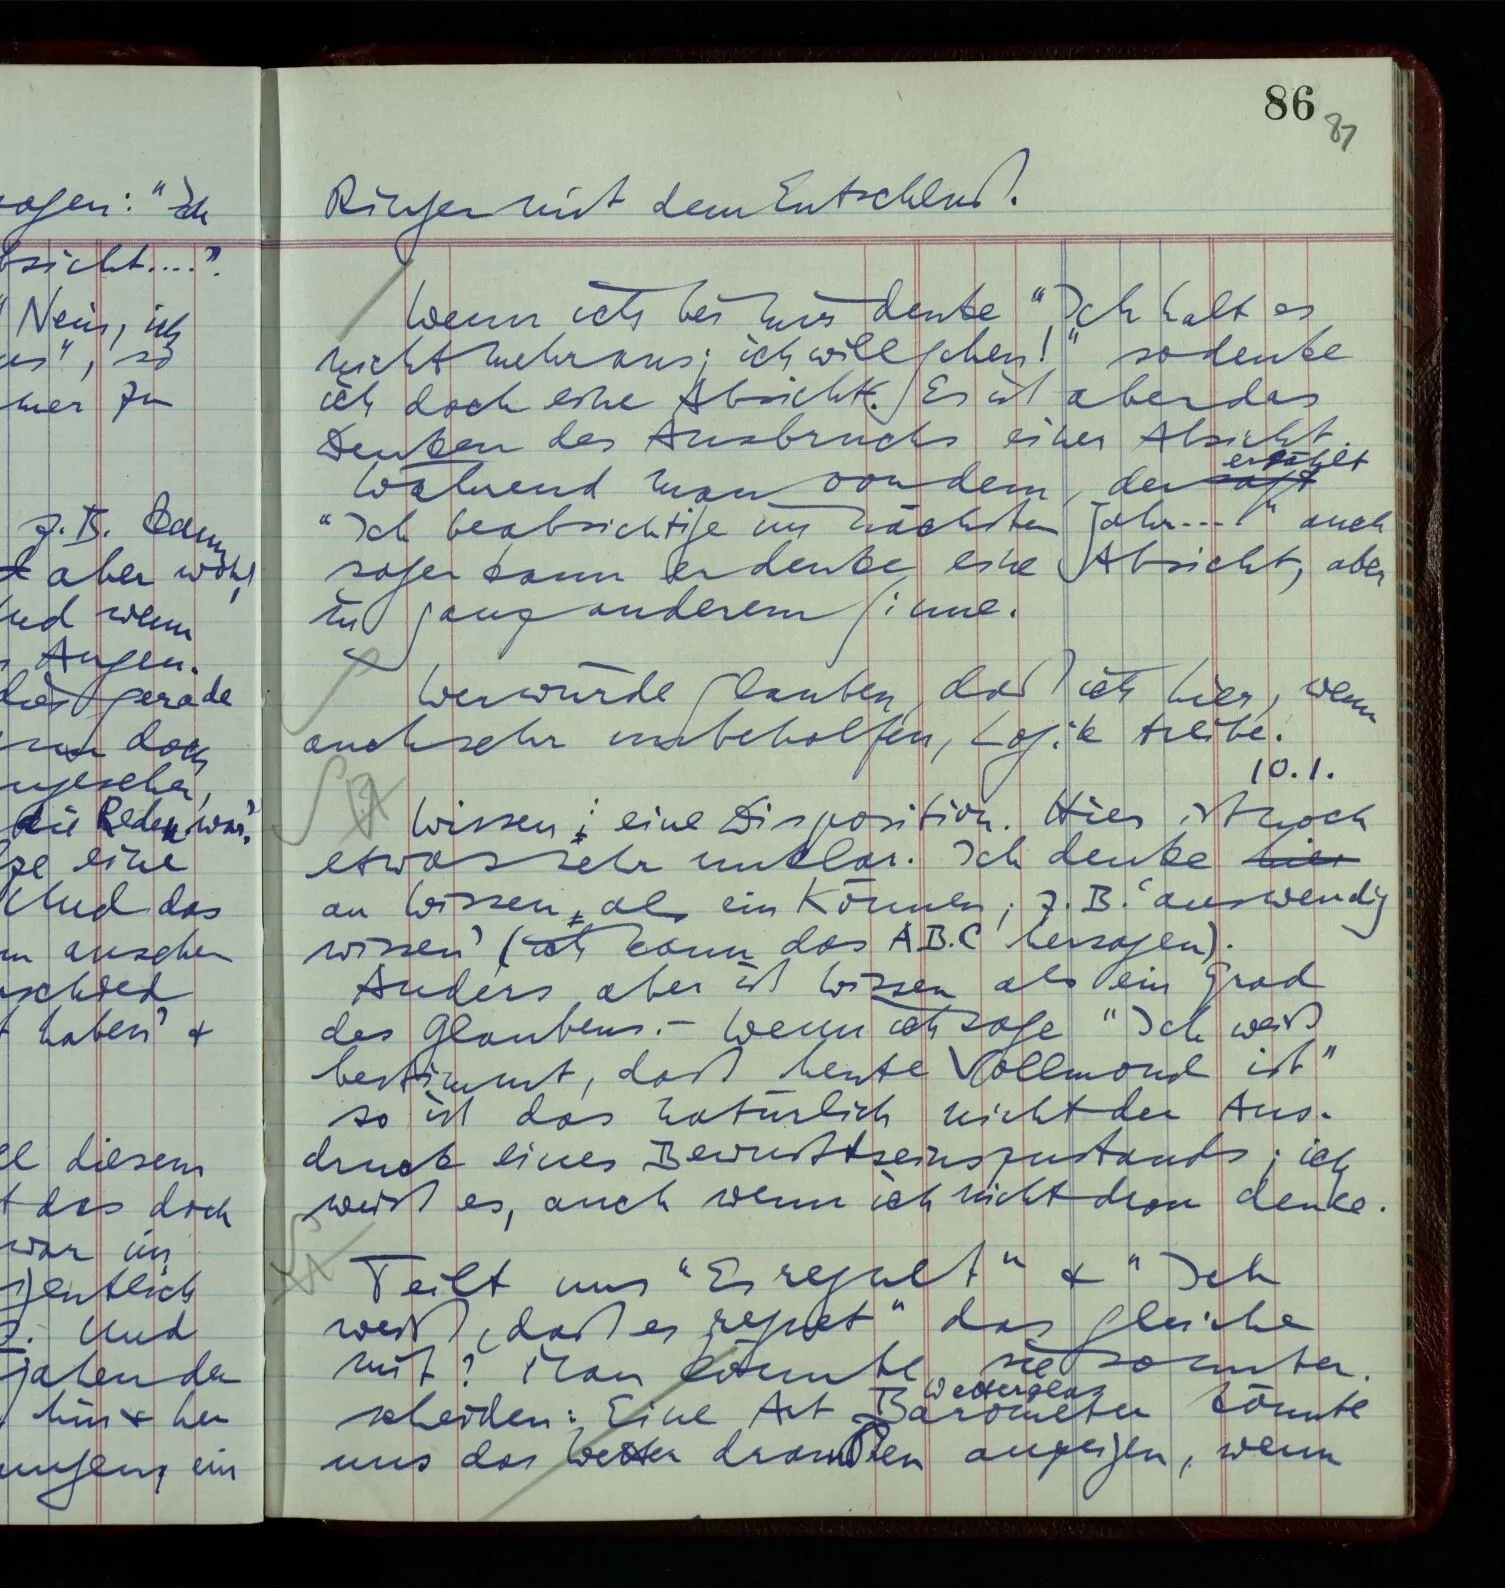 86
87
sagen: "Ich
bsicht....".
" Nein, ich
us", so
mer zu
z.B. Dann
aber wohl,
Und wenn
Augen.
dies gerade
doch
ngesehen,
die Reden war."
ze eine
Und das
m ansehen
schied
haben' &
el diesem
t das doch
war im
igentlich
Und
jahender
hin & her
ungen, ein
Ringen mit dem Entschluß.
Wenn ich bei mir denke "Ich halt es
nicht mehr aus; ich will gehen!" so denke
ich doch eine Absicht. Es ist aber das
Denken des Ausbruchs einer Absicht.
Während man von dem, der sagt erzählt
"Ich beabsichtige im nächsten Jahr...!" auch
sagen kann er denke eine Absicht, aber
in ganz anderem Sinne.
Wer würde glauben, daß ich hier, wenn
auch sehr unbeholfen, Logik treibe.
10.1.
Wissen: eine Disposition. Hier ist noch
etwas sehr unklar. Ich denke hier
an Wissen, als ein Können; z.B. 'auswendig
wissen' (ich kann das ABC hersagen).
Anders aber ist Wissen als ein Grad
des Glaubens. – Wenn ich sage "Ich weiß
bestimmt, daß heute Vollmond ist"
so ist das natürlich nicht der Aus-
druck eines Bewußtseinszustands; ich
weiß es, auch wenn ich nicht dran denke.
Teilt uns "Es regnet" & "Ich
weiß, daß es regnet" das gleiche
mit? Man könnte sie so unter-
scheiden: Eine Art Barometer Wetterglas könnte
uns das Wetter draußen anzeigen, wenn